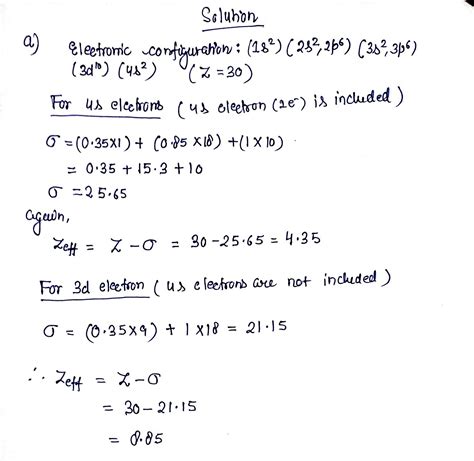 Solution
a) Electronic configuration: (1s²) (2s², 2p⁶) (3s², 3p⁶)
(3d¹⁰) (4s²) (Z = 30)
For 4s electrons ( 4s electron (2e⁻) is included )
σ = (0.35×1) + (0.85 × 18) + (1 × 10)
= 0.35 + 15.3 + 10
σ = 25.65
again,
Zeff = Z – σ = 30 – 25.65 = 4.35
For 3d electron ( 4s electrons are not included )
σ = (0.35×9) + 1 × 18 = 21.15
∴ Zeff = Z – σ
= 30 – 21.15
= 8.85